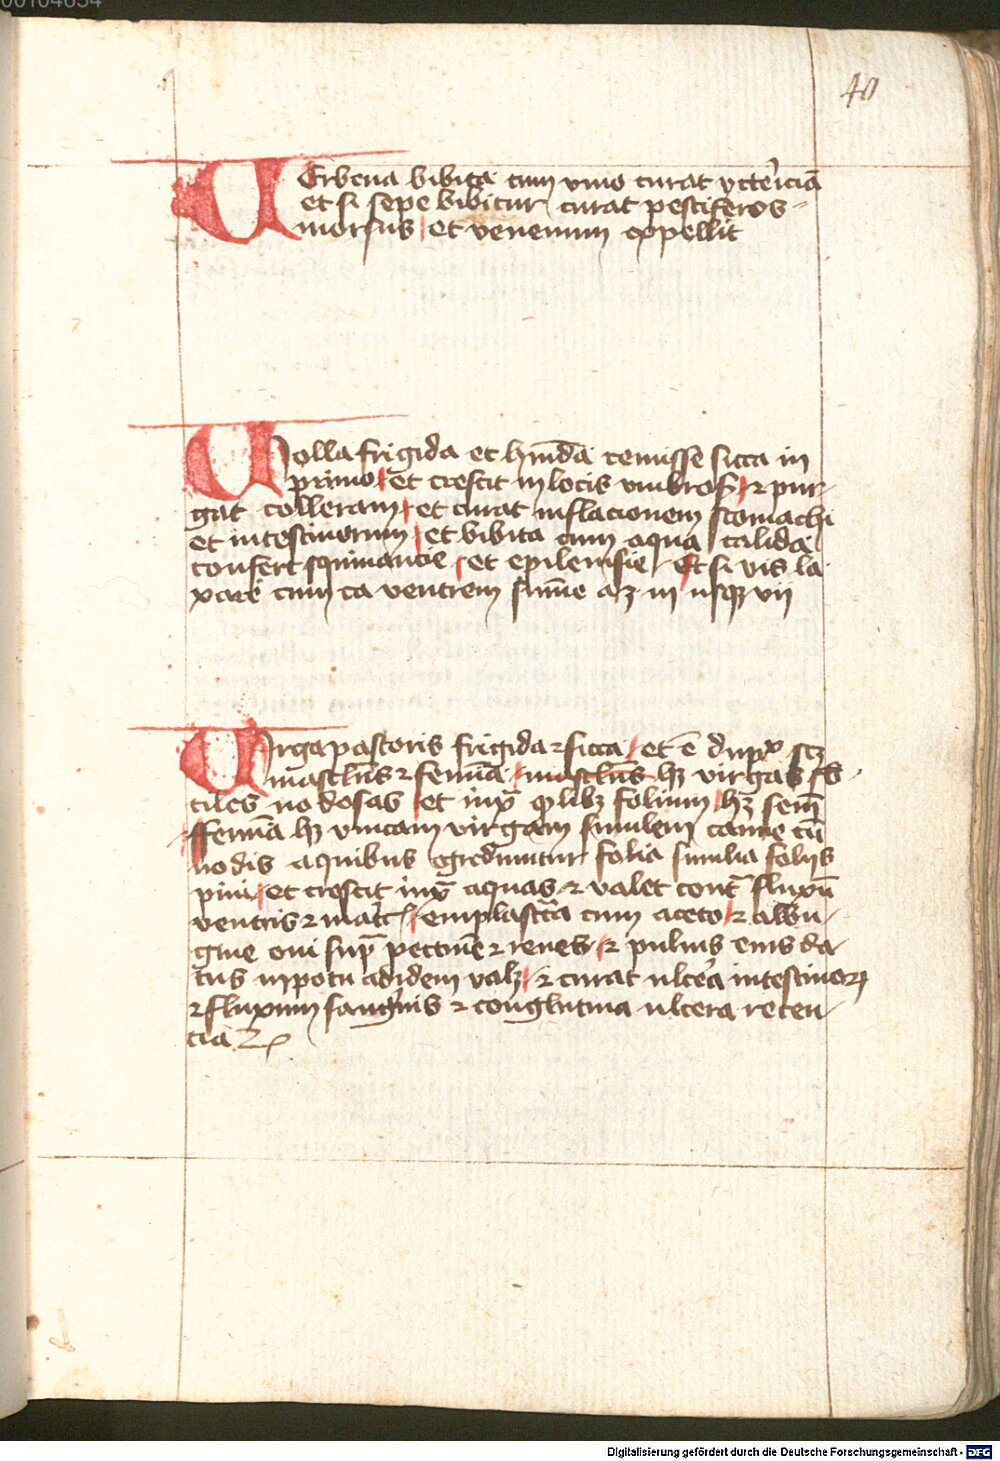 00104634
40
VErbena bibita cum vino curat yctericiā
et si sepe bibitur curat pestiferos
morsus et venenum expellit
Violla frigida et hūida remisse sicca in
primo et crescit in locis vmbros⁊ pur
gat colleram et curat inflacionem stomachi
et intestinorum et bibita cum aqua calida
confert squinancie et epilemsie Et si vis la
xare cum ea ventrem sume aʒ iij usqʒ vij
Virga pastoris frigida ⁊ sicca et ē dupx scʒ
mascl'us ⁊ femīa mascl'us hʒ virgas sb
tiles nodosas et iuxͣ qlibʒ folium hʒ semē
ffemīa hʒ vnicam virgam similem canne cū
nodis a quibus egrediuntur folia similia folijs
pini et crescit iuxͣ aquas ⁊ valet contͣ fluxū
ventris ⁊ matͥcͥ emplastͣta cum aceto ⁊ albu
gine oui supͣ pectinē ⁊ renes ⁊ puluis eius da
tus in potu ad idem valʒ ⁊ curat ulcera intestinorꝝ
⁊ fluxum sangͥnis ⁊ conglutina ulcera recen
cia
Digitalisierung gefördert durch die Deutsche Forschungsgemeinschaft - DFG